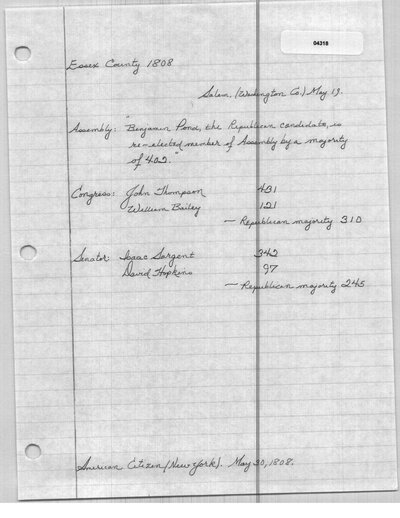 04318
Essex County 1808
Salem, (Washington Co.) May 19.
Assembly: "Benjamin Pond, the Republican candidate, is
re-elected member of Assembly by a majority
of 402."
Congress: John Thompson 431
William Bailey 121
— Republican majority 310
Senator: Isaac Sargent 342
David Hopkins 97
— Republican majority 245
American Citizen (New York). May 30, 1808.